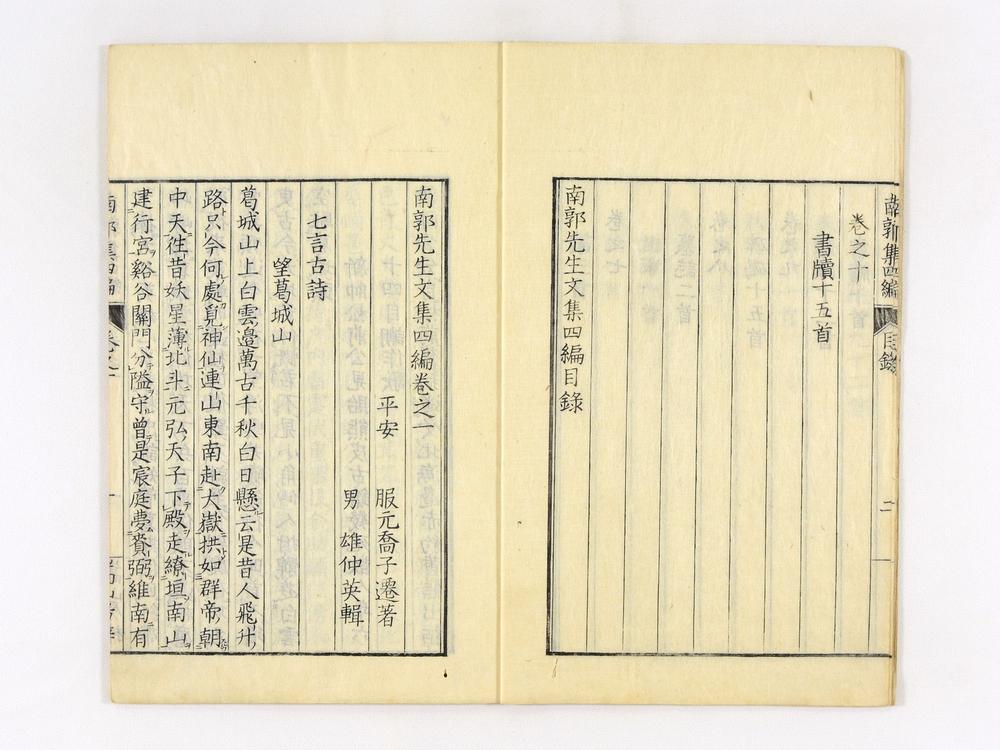 南郭集四編
目錄
卷之十
書牘十五首
二
南郭先生文集四編目錄
南郭先生文集四編卷之一
平安 服元喬子遷著
男 雄仲英輯
七言古詩
望葛城山
葛城山上白雲邉萬古千秋白日懸云是昔人飛升
路只今何處覓神仙連山東南赴大嶽拱如群帝朝
中天徃昔妖星薄北斗元弘天子下殿走繚垣南山
建行宮谿谷關門分隘守曾是宸庭夢賚弼維南有